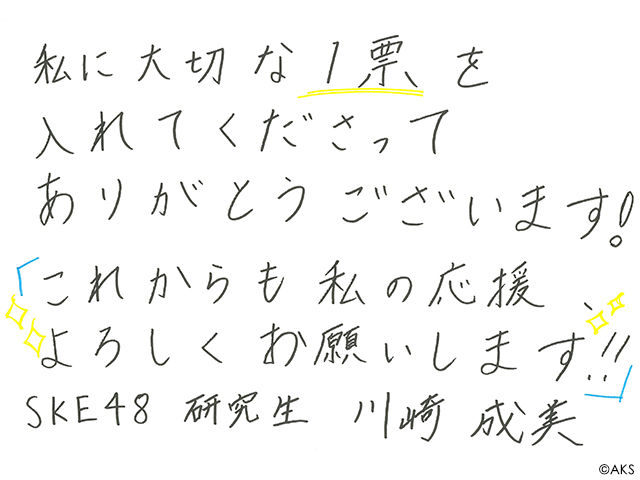 私に大切な1票を
入れてくださって
ありがとうございます!
「これからも私の応援、
よろしくお願いします!!」
SKE48 研究生 川崎 成美
©AKS